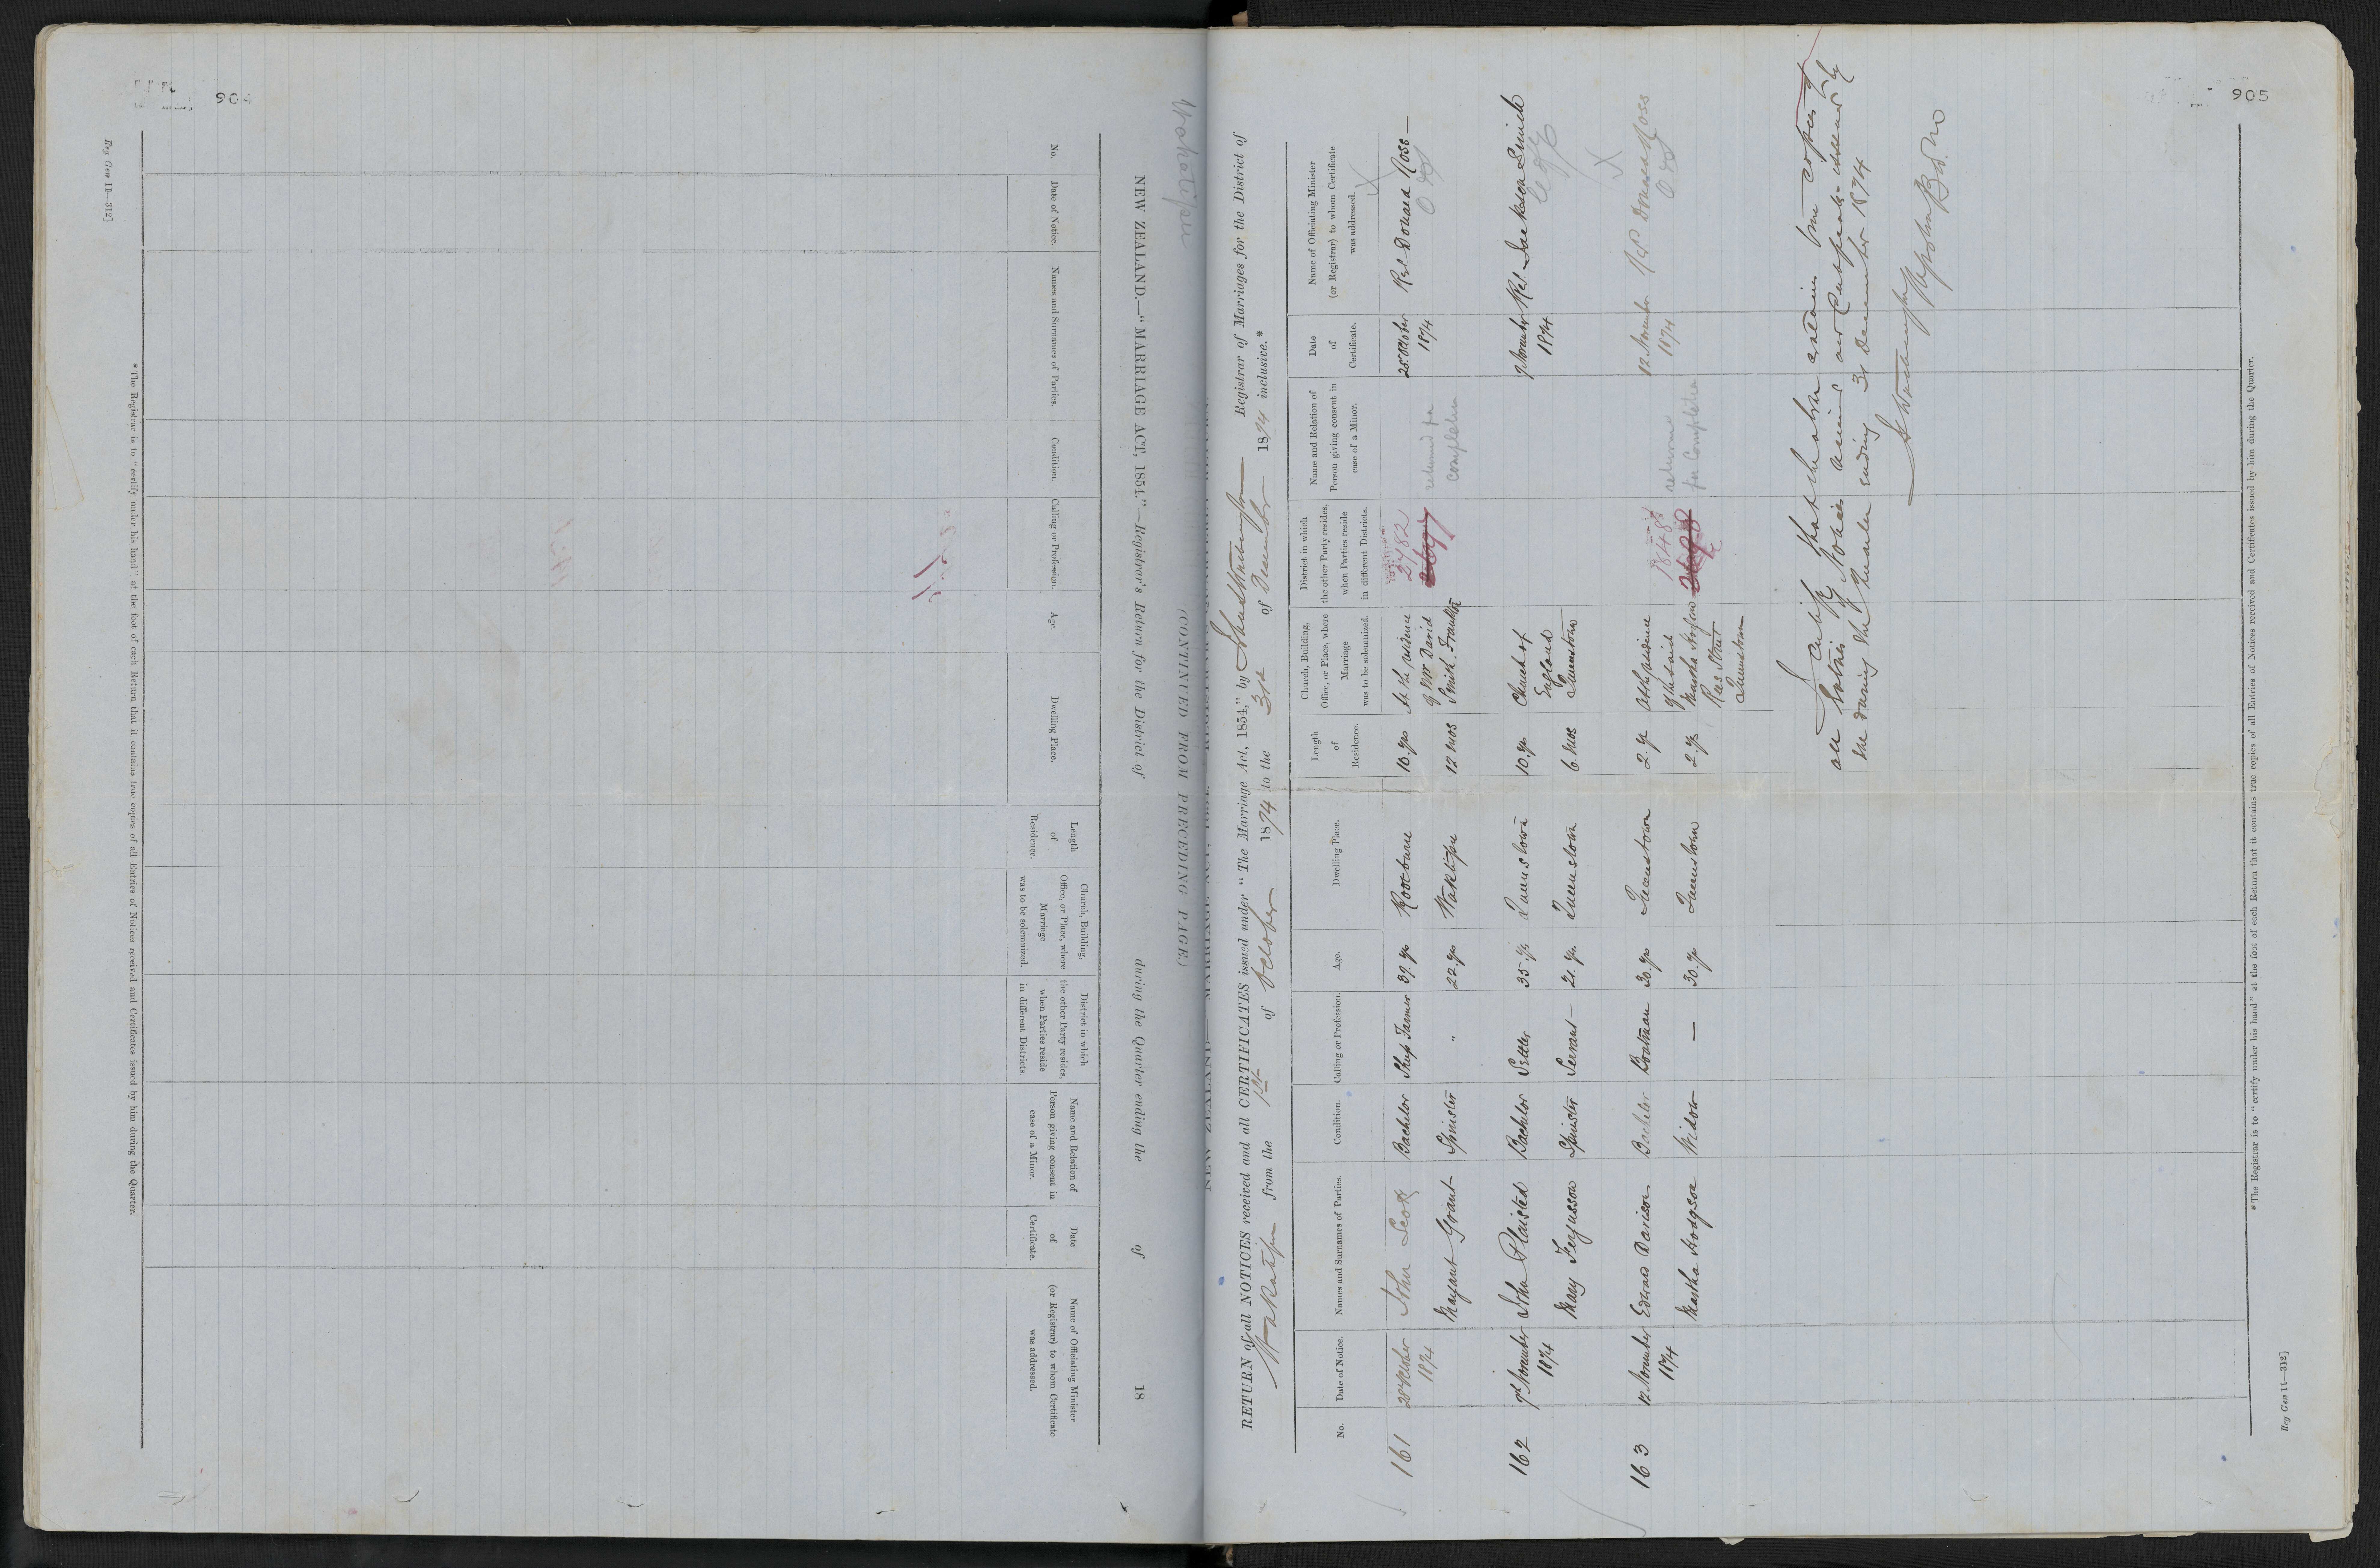 906
Reg Gen 11—312]
NEW ZEALAND.—"MARRIAGE ACT, 1854."—Registrar's Return for the District of during the Quarter ending the of 18
(CONTINUED FROM PRECEDING PAGE.)
No.
Date of Notice.
Names and Surnames of Parties.
Condition.
Calling or Profession.
Age.
Dwelling Place.
Length of Residence.
Church, Building, Office, or Place, where Marriage was to be solemnized.
District in which the other Party resides, when Parties reside in different Districts.
Name and Relation of Person giving consent in case of a Minor.
Date of Certificate.
Name of Officiating Minister (or Registrar) to whom Certificate was addressed.
* The Registrar is to "certify under his hand" at the foot of each Return that it contains true copies of all Entries of Notices received and Certificates issued by him during the Quarter.
905
Wakatipu
RETURN of all NOTICES received and all CERTIFICATES issued under "The Marriage Act, 1854," by Registrar of Marriages for the District of
Wakatipu from the 1st of October 1874 to the 3rd of December 1874 inclusive.*
No.
Date of Notice.
Names and Surnames of Parties.
Condition.
Calling or Profession.
Age.
Dwelling Place.
Length of Residence.
Church, Building, Office, or Place, where Marriage was to be solemnized.
District in which the other Party resides, when Parties reside in different Districts.
Name and Relation of Person giving consent in case of a Minor.
Date of Certificate.
Name of Officiating Minister (or Registrar) to whom Certificate was addressed.
161 28 October John Scott Bachelor Sheep Farmer 39 yrs 10 yrs At the residence 2782 returned for 28 October Rev Donald Ross —
1874 Margaret Grant Spinster " 22 yrs Wakatipu 12 mos of Mr David Smith Frankton 2697 completion 1874
162 9 November John Plaisted Bachelor Settler 35 yrs Queenstown 10 yrs Church of 9 November Rev.
1874 Mary Fergusson Spinster Servant — 21 yrs Queenstown 6 mos England Queenstown 1874
163 12 November Edward Davison Bachelor Boatman 30 yrs Queenstown 2 yr At the residence returned 12 November Rev Donald Ross
1874 Martha Hodgson Widow — 30 yr Queenstown 2 yrs of the said Martha Hodgson Rees Street Queenstown for Completion 1874
I certify that the above contain true copies of
all Entries of Notices received and Certificates issued by
me during the Quarter ending 31 December 1874
* The Registrar is to "certify under his hand" at the foot of each Return that it contains true copies of all Entries of Notices received and Certificates issued by him during the Quarter.
Reg Gen 11—312]